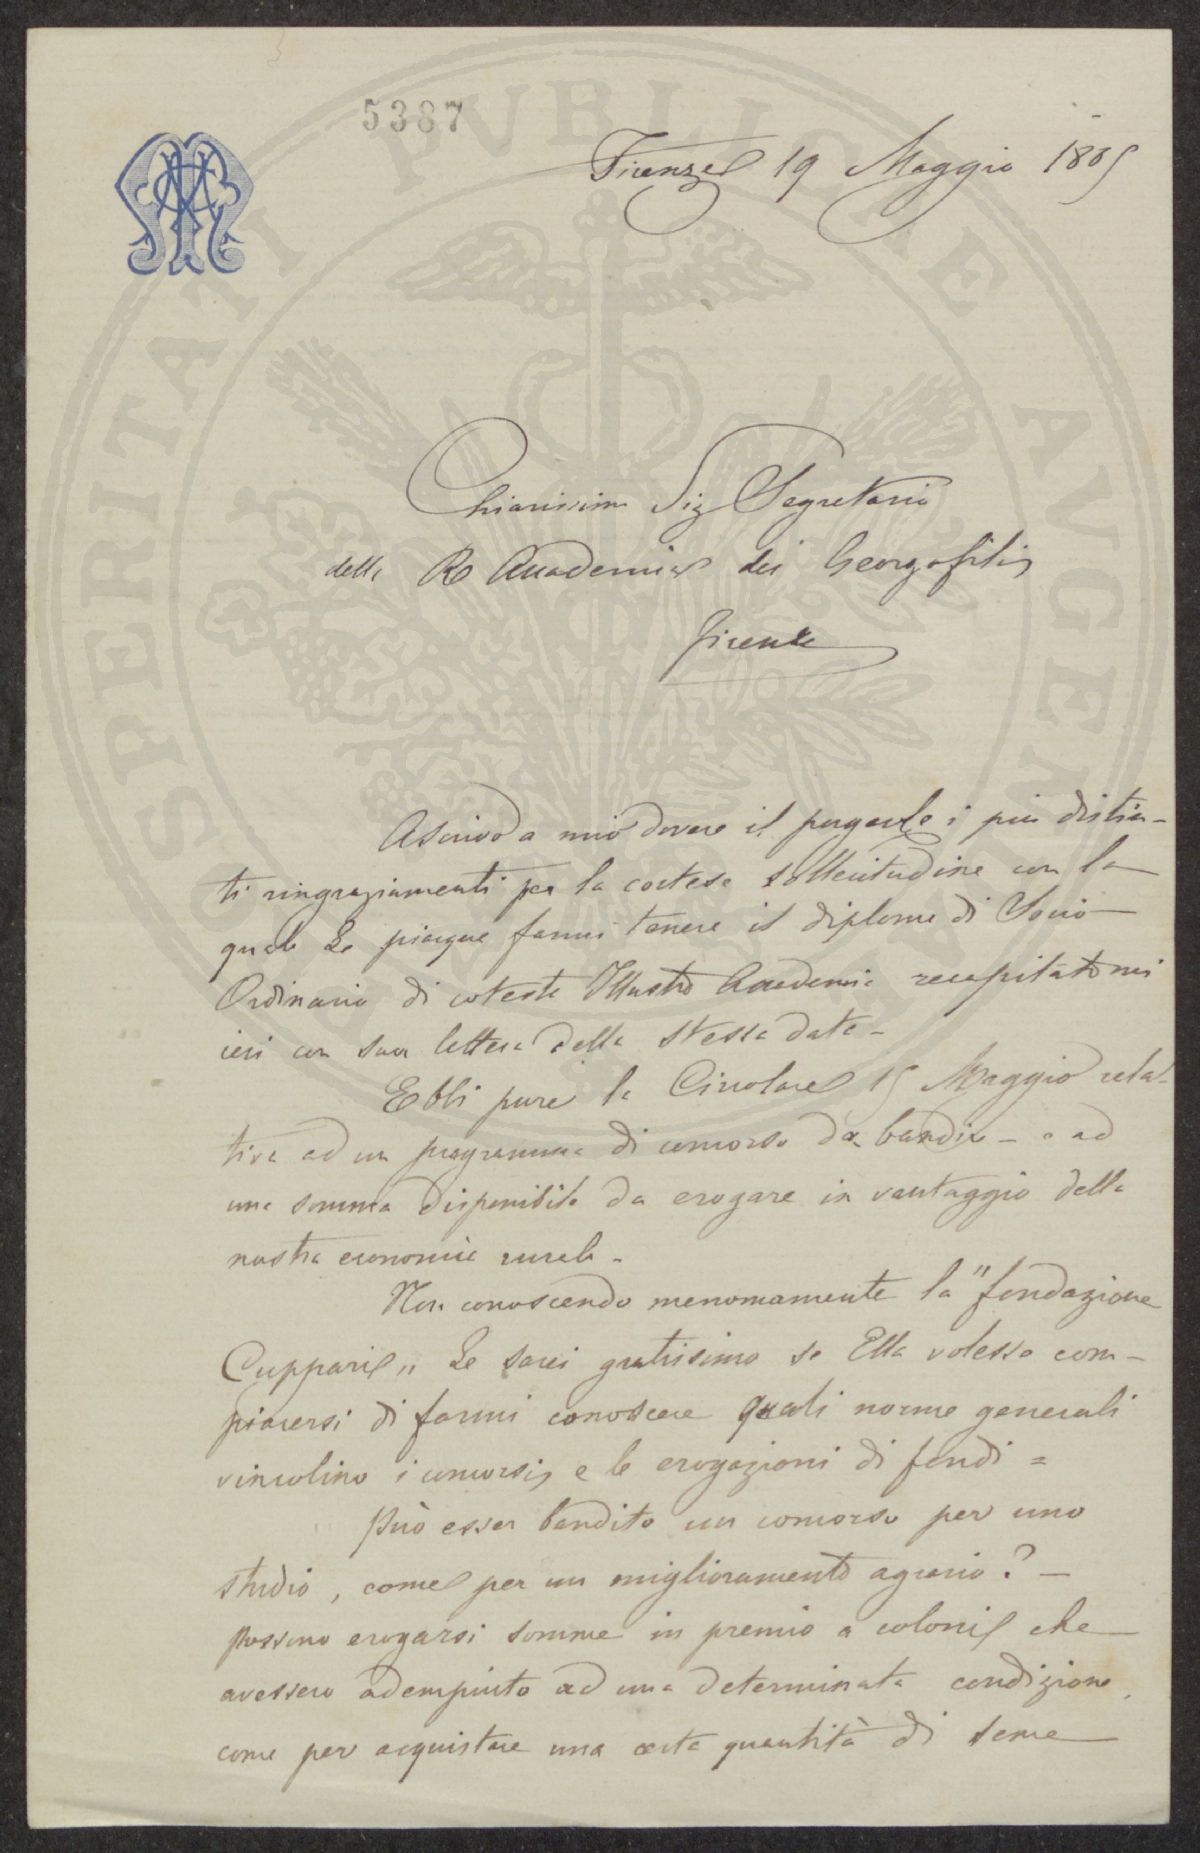 5387
Firenze 19 Maggio 1885
Chiarissimo Sig Segretario
della R Accademia dei Georgofili
Firenze
Ascrivo a mio dovere il porgerle i più distin-
ti ringraziamenti per la cortese sollecitudine con la
quale Le piacque farmi tenere il diploma di Socio
Ordinario di cotesta Illustre Accademia recapitatomi
ieri con sua lettera della stessa data -
Ebbi pure la Circolare 15 Maggio rela-
tiva ad un programma di concorso da bandire - o ad
una somma disponibile da erogare in vantaggio della
nostra economia rurale -
Non conoscendo menomamente la "fondazione
Cuppari" Le sarei gratissimo se Ella volesse com-
piacersi di farmi conoscere quali norme generali
vincolino i concorsi, e le erogazioni di fondi =
Può esser bandito un concorso per uno
studio, come per un miglioramento agrario? -
possono erogarsi somme in premio a coloni che
avessero adempiuto ad una determinata condizione,
come per acquistare una certa quantità di seme
PROSPERITATI PVBLICAE AVGENDAE